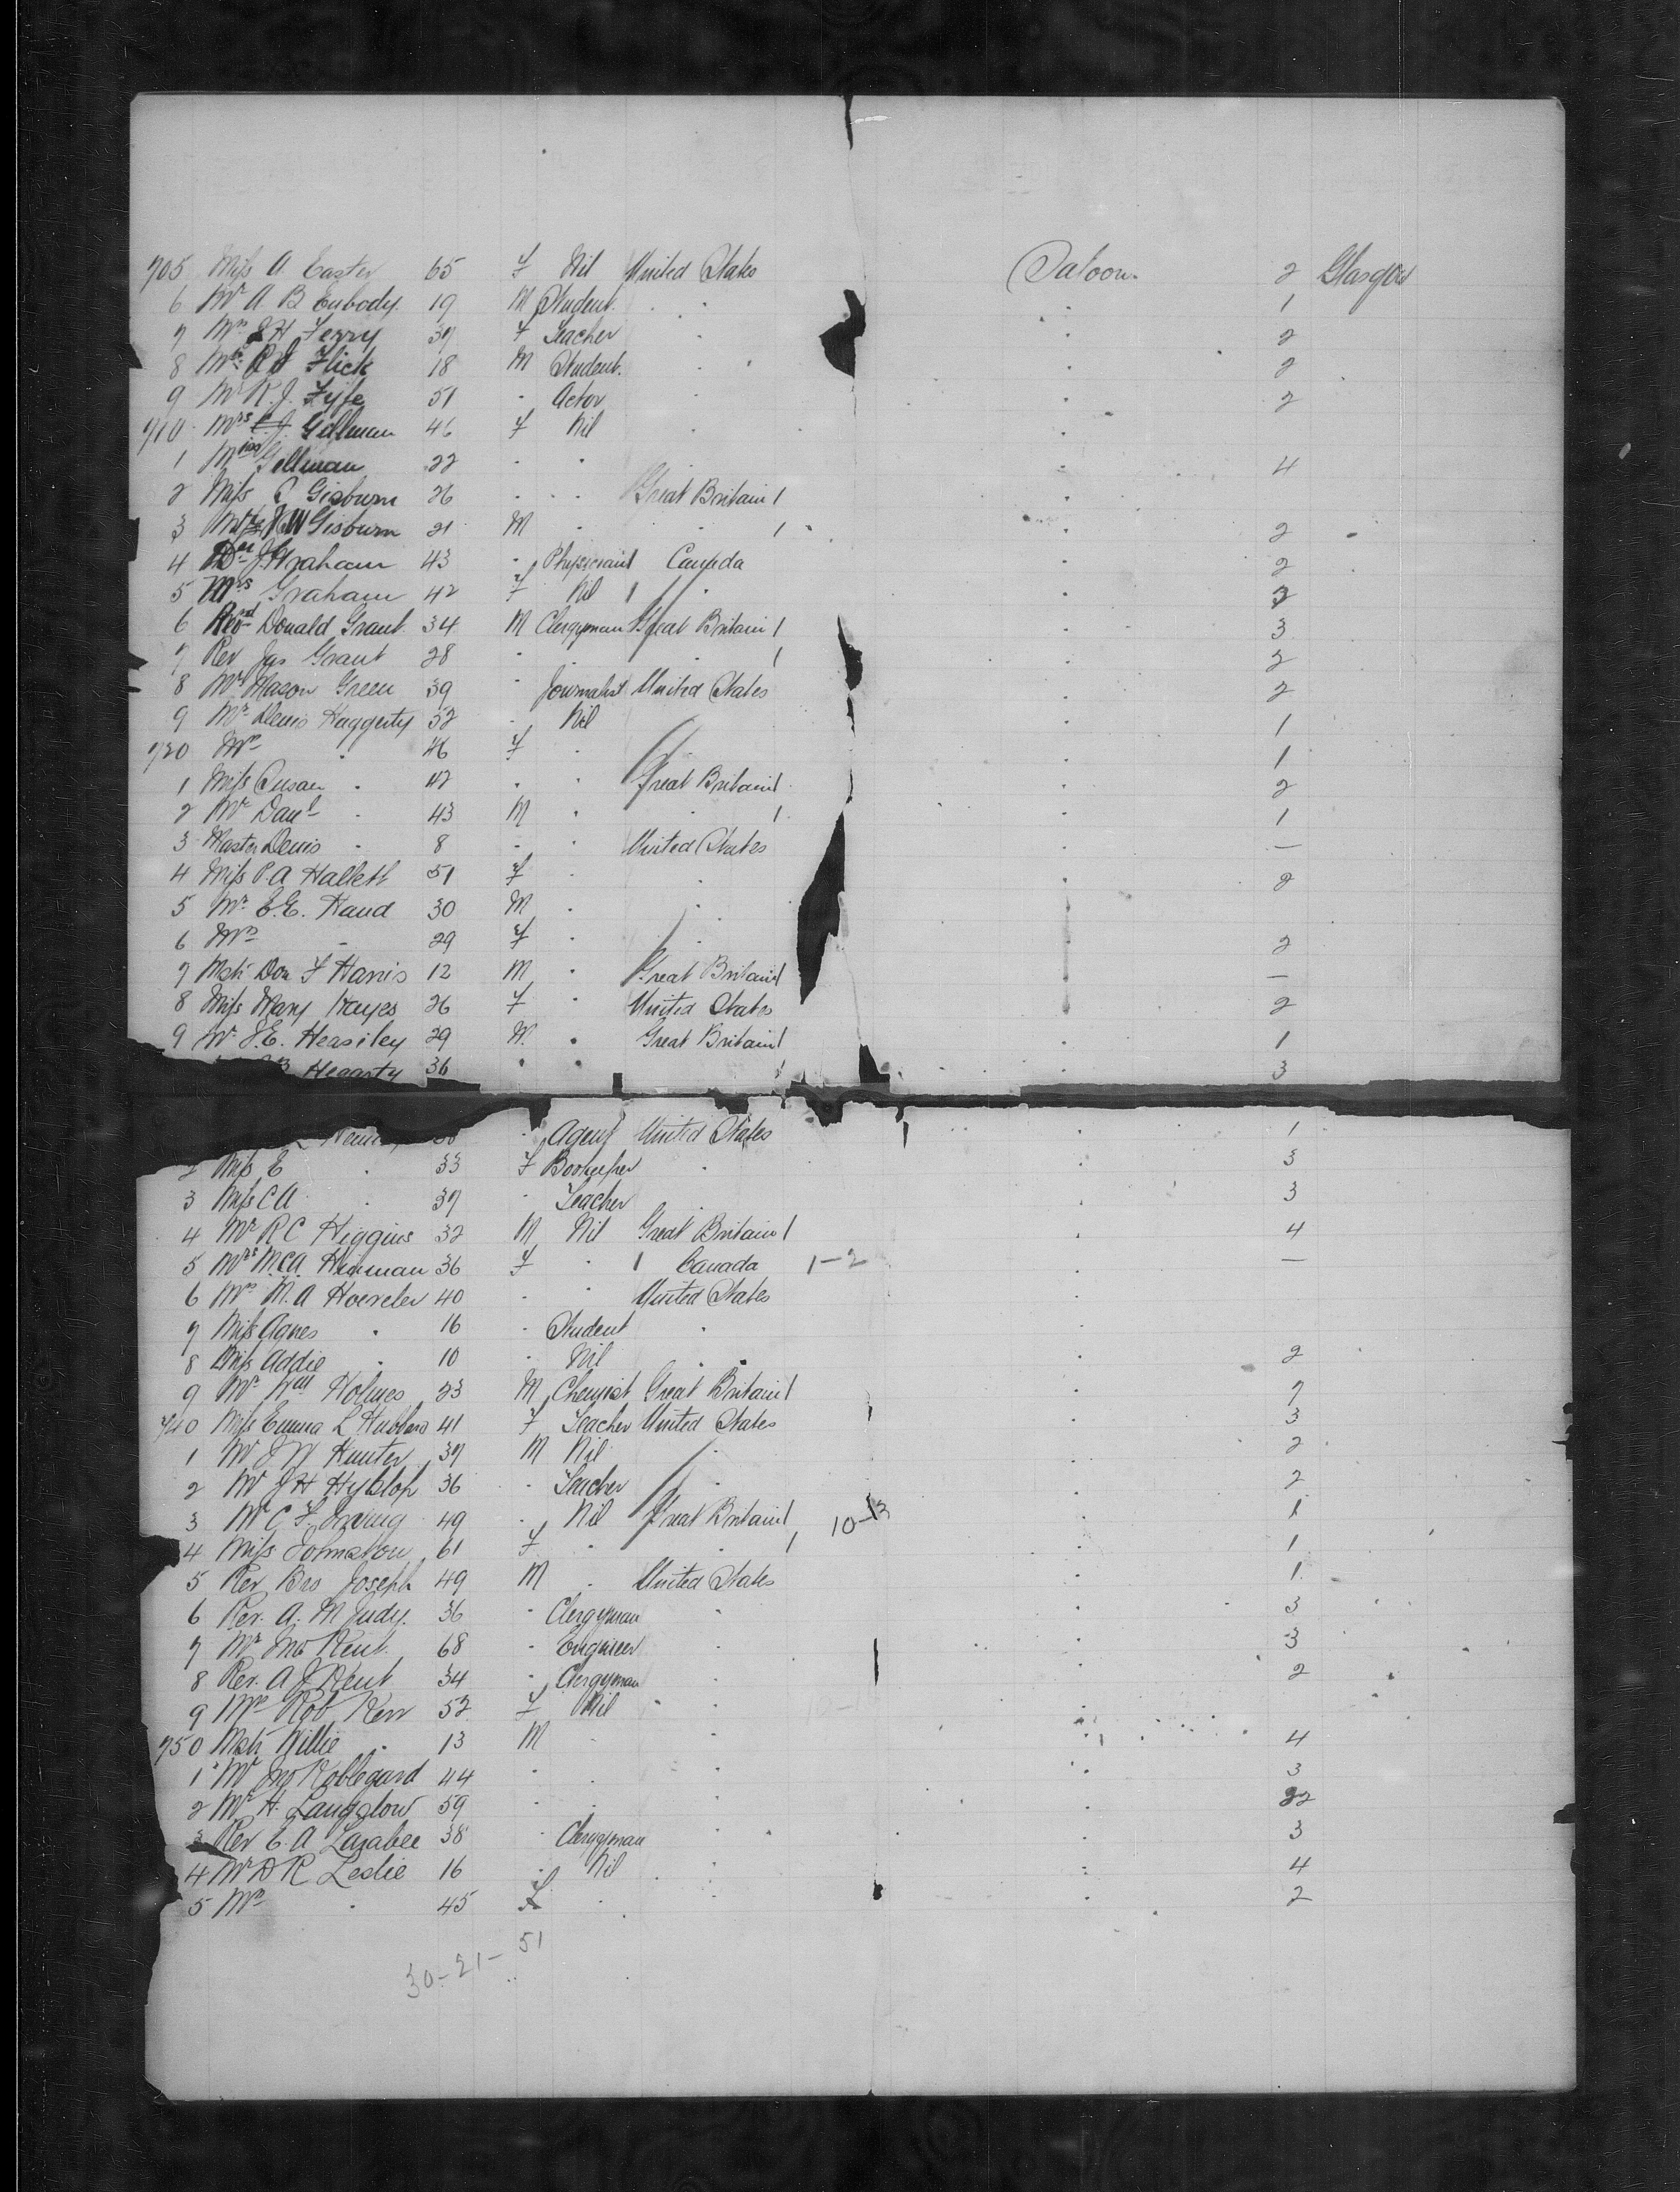 705 Miss A. Easter 65 F Nil United States Saloon. 2 Glasgow
6 Mr A B Eubody. 19 M Student. " " 1
7 Mrs J H Ferry 37 F Teacher " " 2
8 Mr R J Flick 18 M Student. " " 2
9 Mr R. J. Fyfe 51 " Actor " " 2
710 Mrs Gillman 46 F Nil " "
1 Miss Gillman 22 " " " 4
2 Miss Gisburn 26 " " Great Britain 1 "
3 W Gisburn 21 M " " 1 " 2
4 Dr J Graham 43 " Physician 1 Canada " 2
5 Mrs Graham 42 F Nil 1 " "
6 Revd Donald Grant 34 M Clergyman Great Britain 1 " 3
7 Rev Jas Grant 28 " " " 1 " 2
8 Mr Mason Green 39 " Journalist United States " 2
9 Mr Denis Haggerty 52 " Nil " 1
720 Mrs " 46 F " " " 1
1 Miss Susan " 47 " " Great Britain 1 " 2
2 Mr Danl " 43 M " " 1 " 1
3 Master Denis " 8 " " United States " —
4 Miss P. A Hallett 51 F " " " 2
5 Mr E. E. Hand 30 M " " "
6 Mrs " 29 F " " " 2
7 Mstr Don F Harris 12 M " Great Britain 1 " —
8 Miss Mary Hayes 26 F " United States " 2
9 Mr J. E. Heasiley 29 M. " Great Britain 1 " 1
Hegarty 36 " " " 3
" Agent United States " 1
2 Miss E " 33 F " " 3
3 Miss C A " 37 " Teacher " " 3
4 Mr R C Higgins 32 M Nil Great Britain 1 " 4
5 Mrs McA. Hinman 36 F " 1 Canada 1-2 " —
6 Mrs M. A Hoeveler 40 " " United States "
7 Miss Agnes " 16 " Student " "
8 Miss Addie " 10 " Nil " " 2
9 Mr Wm Holmes 23 M Chemist Great Britain 1 " 7
740 Miss Emma L Hubbard 41 F Teacher United States " 3
1 Mr J W Hunter 37 M Nil " " 2
2 Mr J H Hyslop 36 " Teacher " " 2
3 Mr C F. Irving 49 " Nil Great Britain 1 10-13 " 1
4 Miss Johnston 61 F " " 1 " 1
5 Rev Bro Joseph 49 M " United States " 1
6 Rev. A. M Judy. 36 " Clergyman " " 3
7 Mr Jno Kent. 68 " Engineer " " 3
8 Rev. A J Kent 34 " Clergyman " " 2
9 Mrs Rob Kerr 52 F Nil " "
750 Mstr Willie " 13 M " " " 4
1 Mr Jno Koblegard 44 " " " " 3
2 Mr H. Langslow 59 " " " "
3 Rev E. A Lazabee 38 " Clergyman " " 3
4 Mr D R Leslie 16 " Nil " " 4
5 Mrs " 45 F " " " 2
30-21- 51